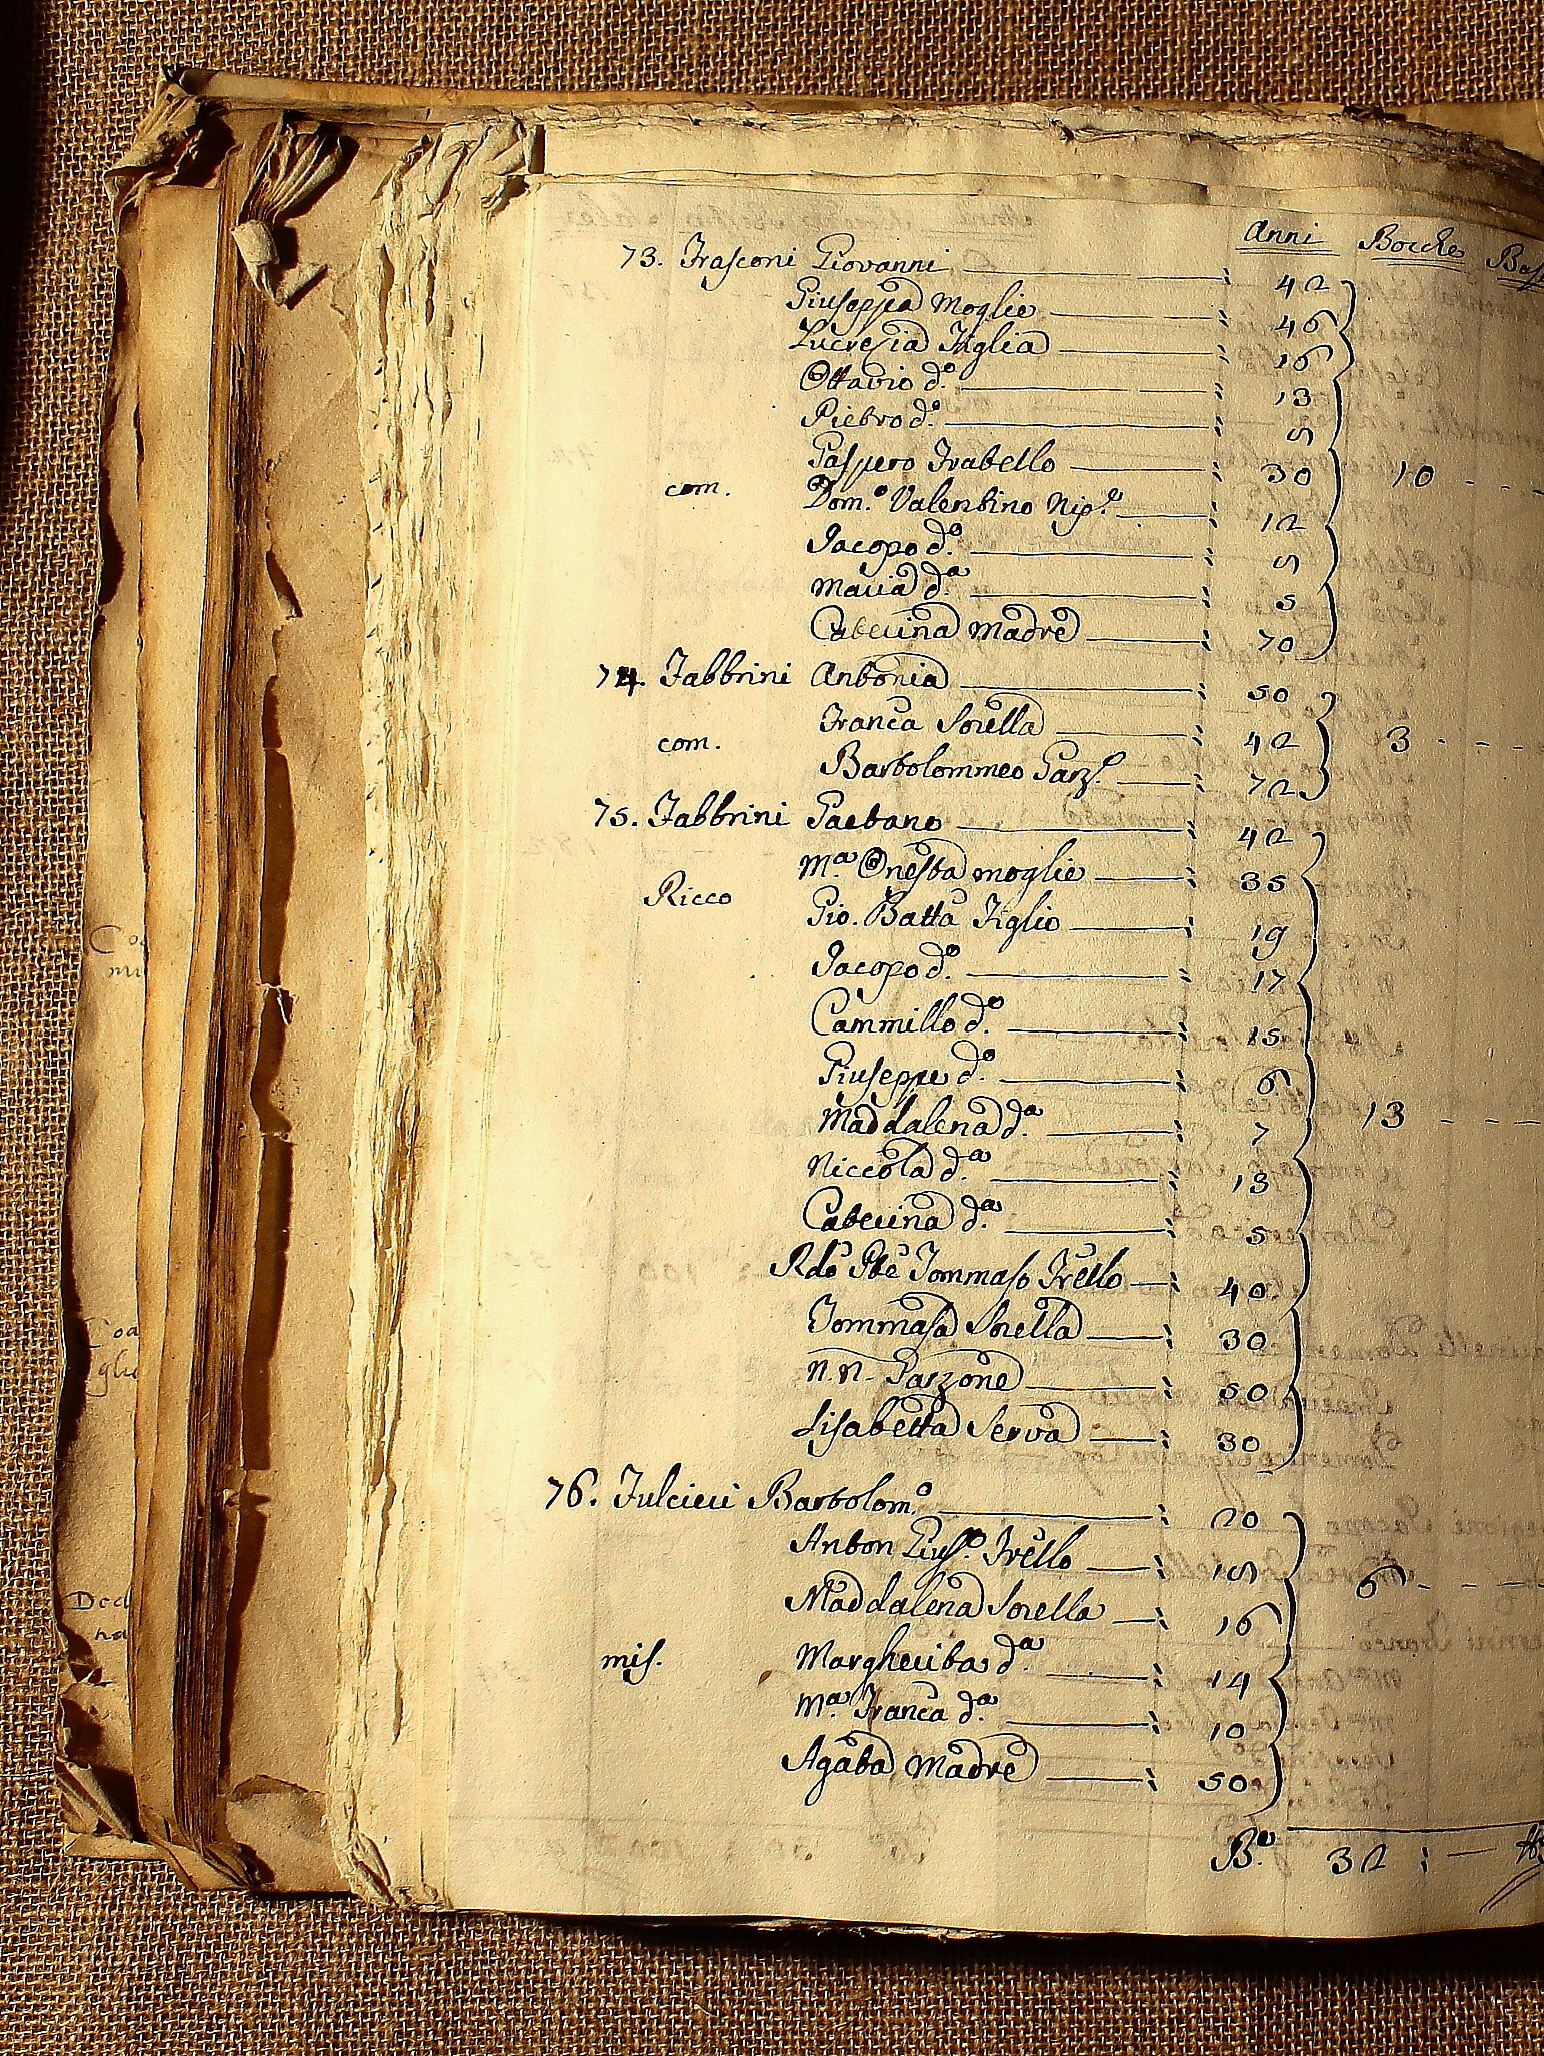 Anni Bocche
73. Frasconi Giovanni 42
Giuseppa Moglie 46
Lucrezia Figlia 16
Ottavio d.º 13
Pietro d.º 5
Gaspero Fratello 30 10
com. Dom.º Valentino Nip.e 12
Jacopo d.º 5
Maria d.ª 5
Caterina Madre 70
74. Fabbrini Antonia 50
Franca Sorella 42 3
com. Bartolommeo Garz.e 72
75. Fabbrini Gaetano 42
M.ª Onesta moglie 35
Ricco Gio. Batta Figlio 19
Jacopo d.º 17
Cammillo d.º 15
Giuseppe d.º 6
Maddalena d.ª 7 13
Niccola d.ª 13
Caterina d.ª 5
Rdo Pte Tommaso Frello 40
Tommasa Sorella 30
N.N. Garzone 50
Lisabetta Serva 30
76. Fulcieri Bartolom.º 20
Anton Gius.e Frello 18
Maddalena Sorella 16 6
mis. Margherita d.ª 14
M.ª Franca d.ª 10
Agata Madre 50
B.e 32